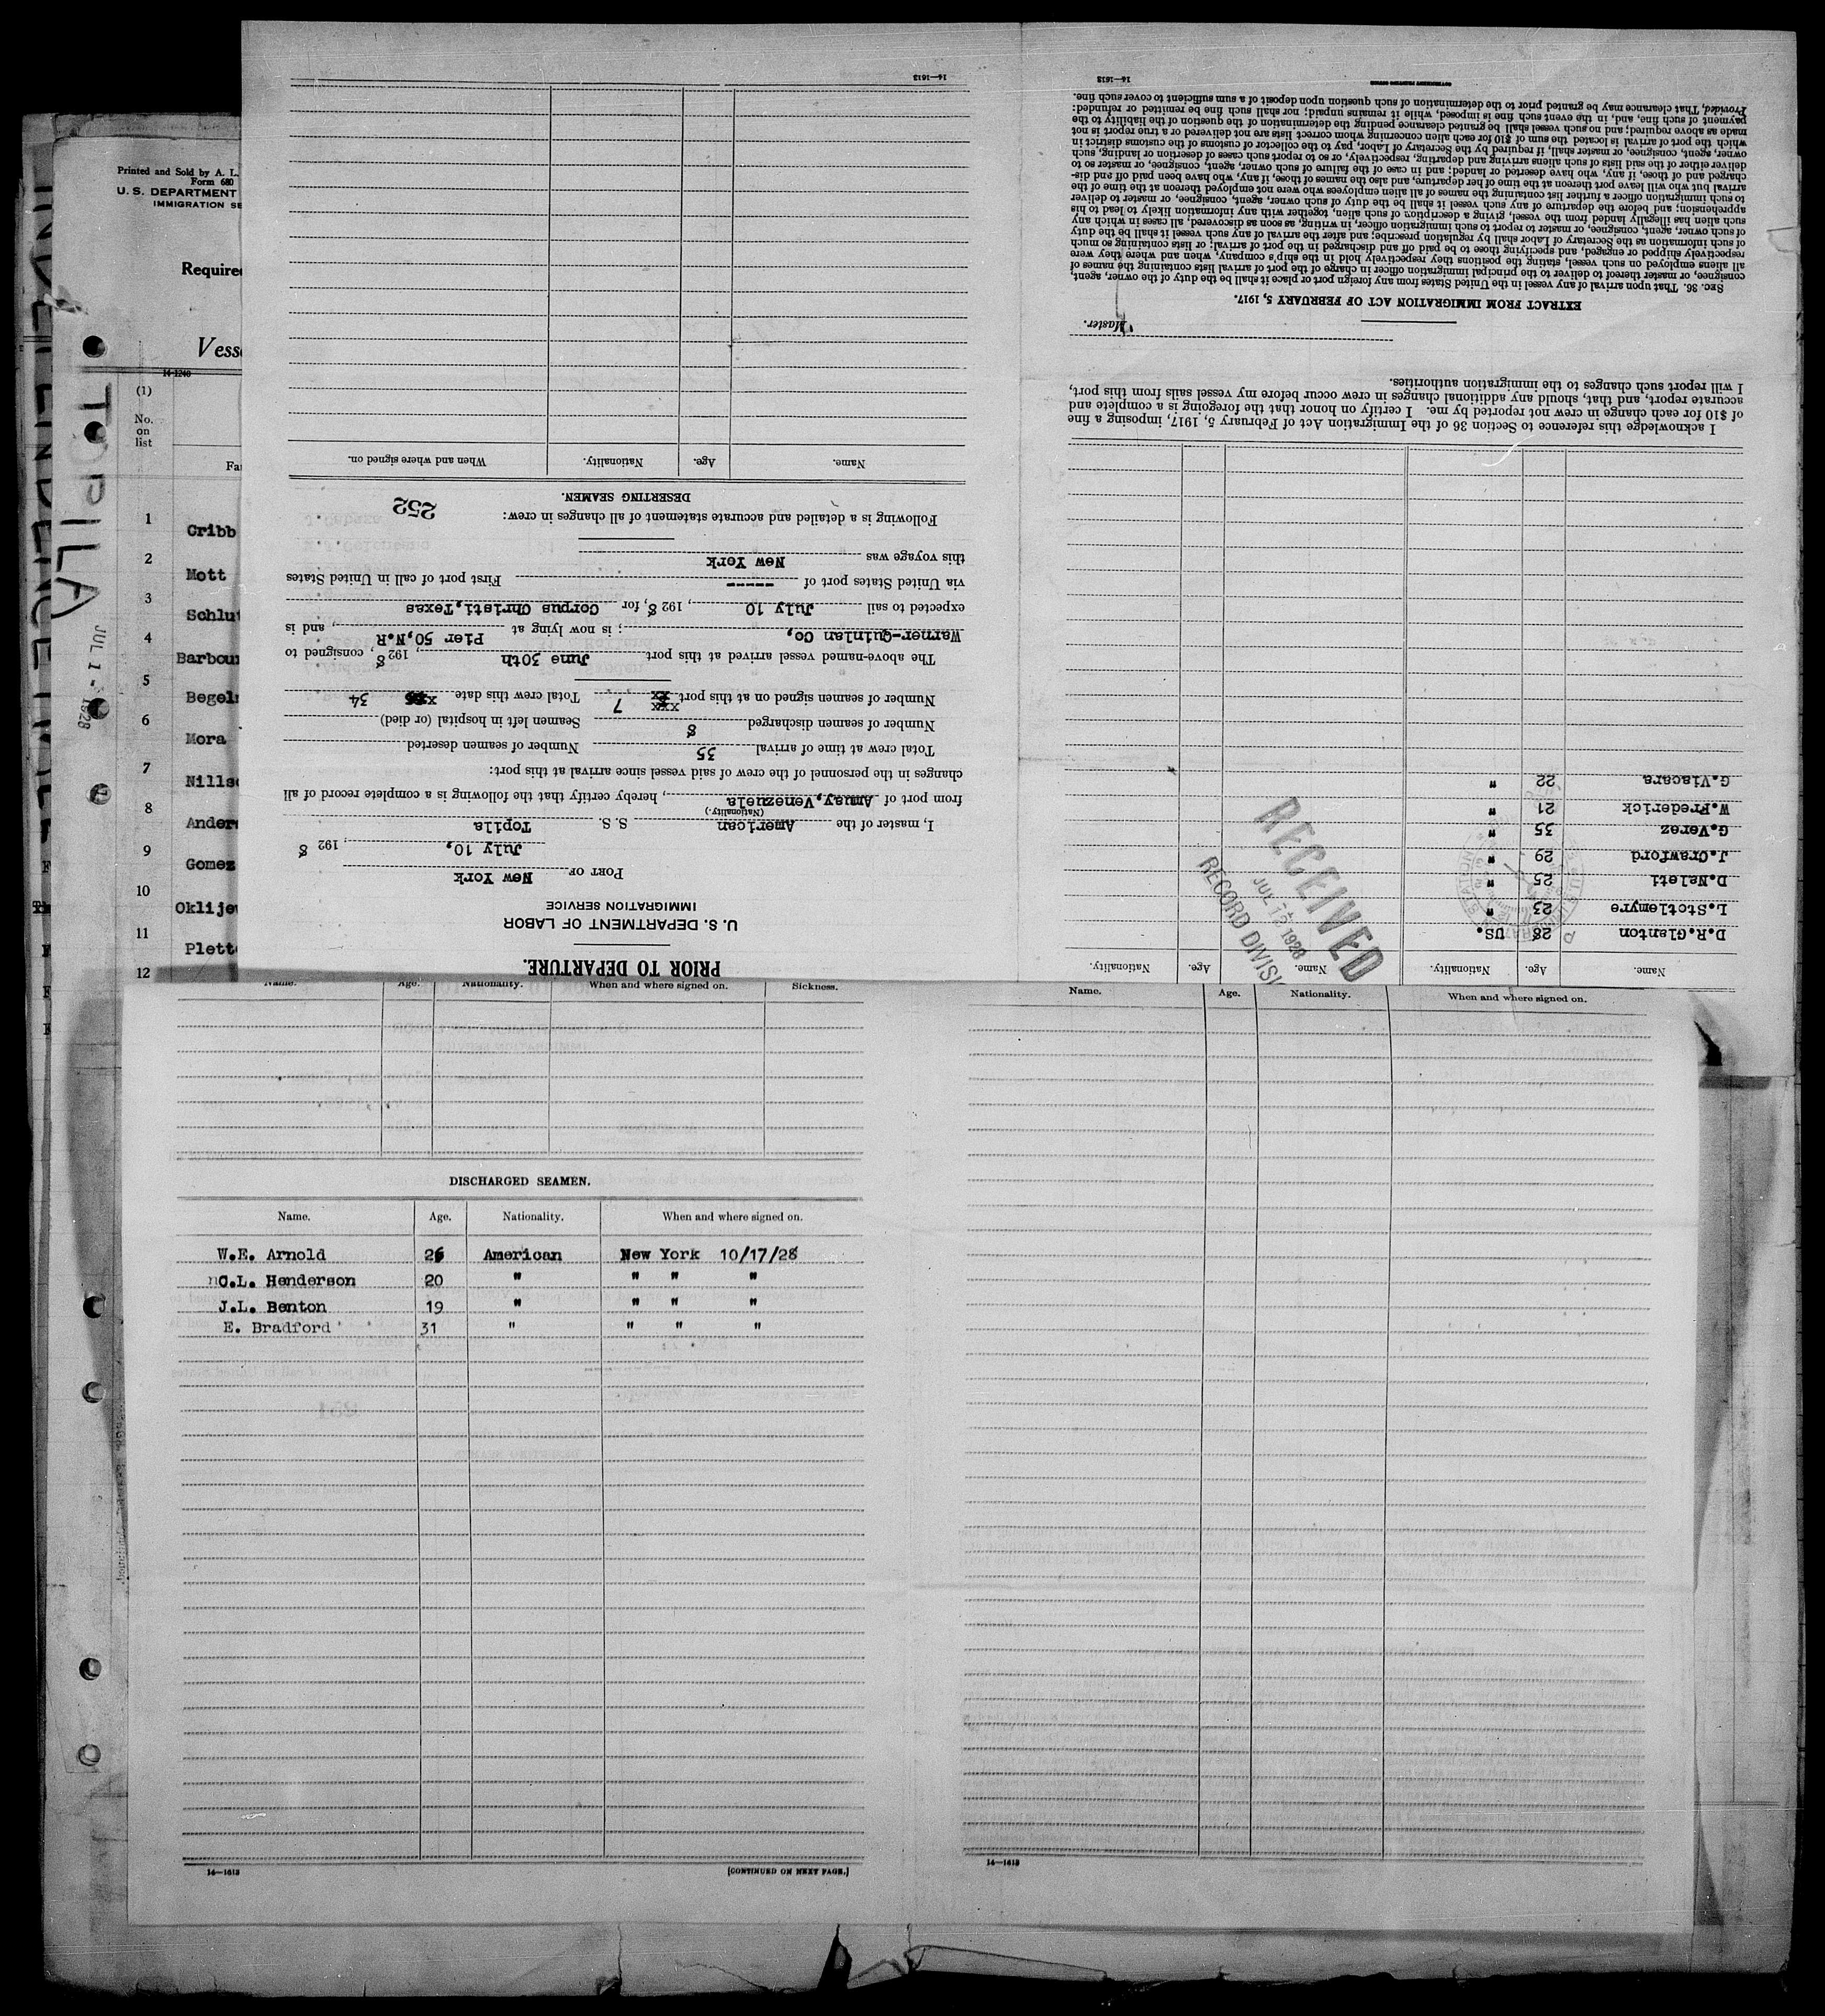 Printed and Sold by A. L.
Form 680
U. S. DEPARTMENT
IMMIGRATION SE
Required
Vess
14-1240
(1)
No.
on
list
Fa
1 Cribb
2 Mott
3 Schlut
4 Barbour
5 Begelm
6 Mora
7 Nillso
8 Anders
9 Gomez
10 Oklije
11 Plett
12
TOPILA
JUL 1 - 1928
PRIOR TO DEPARTURE.
U. S. DEPARTMENT OF LABOR
IMMIGRATION SERVICE
PORT OF New York
July 10, 1928
I, master of the American S. S. Topila
(Nationality.)
from port of Amuay, Venezuela, hereby certify that the following is a complete record of all
changes in the personnel of the crew of said vessel since arrival at this port:
Total crew at time of arrival 35 Number of seamen deserted
Number of seamen discharged 8 Seamen left in hospital (or died)
Number of seamen signed on at this port 7 Total crew this date 34
The above-named vessel arrived at this port June 30th, 1928, consigned to
Warner-Quinlan Co, ; is now lying at Pier 50,N.R, and is
expected to sail July 10, 1928, for Corpus Christi,Texas
via United States port of ------ First port of call in United States
this voyage was New York
Following is a detailed and accurate statement of all changes in crew:
252
DESERTING SEAMEN.
Name. Age. Nationality. When and where signed on.
14—1613
Name. Age. Nationality. Name. Age. Nationality.
D.R.Glanton 28 US.
L.Stotlemyre 23 "
D.Neleti 25 "
J.Crawford 29 "
G.Verez 35 "
W.Frederick 21 "
G.Viacara 22 "
RECEIVED
JUL 12 1928
RECORD DIVISI
I acknowledge this reference to Section 36 of the Immigration Act of February 5, 1917, imposing a fine
of $10 for each change in crew not reported by me. I certify on honor that the foregoing is a complete and
accurate report, and that, should any additional changes in crew occur before my vessel sails from this port,
I will report such changes to the immigration authorities.
Master.
EXTRACT FROM IMMIGRATION ACT OF FEBRUARY 5, 1917.
SEC. 36. That upon arrival of any vessel in the United States from any foreign port or place it shall be the duty of the owner, agent,
consignee, or master thereof to deliver to the principal immigration officer in charge of the port of arrival lists containing the names of
all aliens employed on such vessel, stating the positions they respectively hold in the ship's company, when and where they were
respectively shipped or engaged, and specifying those to be paid off and discharged in the port of arrival; or lists containing so much
of such information as the Secretary of Labor shall by regulation prescribe; and after the arrival of any such vessel it shall be the duty
of such owner, agent, consignee, or master to report to such immigration officer, in writing, as soon as discovered, all cases in which any
such alien has illegally landed from the vessel, giving a description of such alien, together with any information likely to lead to his
apprehension; and before the departure of any such vessel it shall be the duty of such owner, agent, consignee, or master to deliver
to such immigration officer a further list containing the names of all alien employees who were not employed thereon at the time of the
arrival but who will leave port thereon at the time of her departure, and also the names of those, if any, who have been paid off and dis-
charged and of those, if any, who have deserted or landed; and in case of the failure of such owner, agent, consignee, or master so to
deliver either of the said lists of such aliens arriving and departing, respectively, or so to report such cases of desertion or landing, such
owner, agent, consignee, or master shall, if required by the Secretary of Labor, pay to the collector of customs of the customs district in
which the port of arrival is located the sum of $10 for each alien concerning whom correct lists are not delivered or a true report is not
made as above required; and no such vessel shall be granted clearance pending the determination of the question of the liability to the
payment of such fine, and, in the event such fine is imposed, while it remains unpaid; nor shall such fine be remitted or refunded:
Provided, That clearance may be granted prior to the determination of such question upon deposit of a sum sufficient to cover such fine.
14—1613 GOVERNMENT PRINTING OFFICE
Name. Age. Nationality. When and where signed on. Sickness.
DISCHARGED SEAMEN.
Name. Age. Nationality. When and where signed on.
W.E. Arnold 26 American New York 10/17/28
C.L. Henderson 20 " " " "
J.L. Benton 19 " " " "
E. Bradford 31 " " " "
14—1613 [CONTINUED ON NEXT PAGE.]
Name. Age. Nationality. When and where signed on.
14—1613